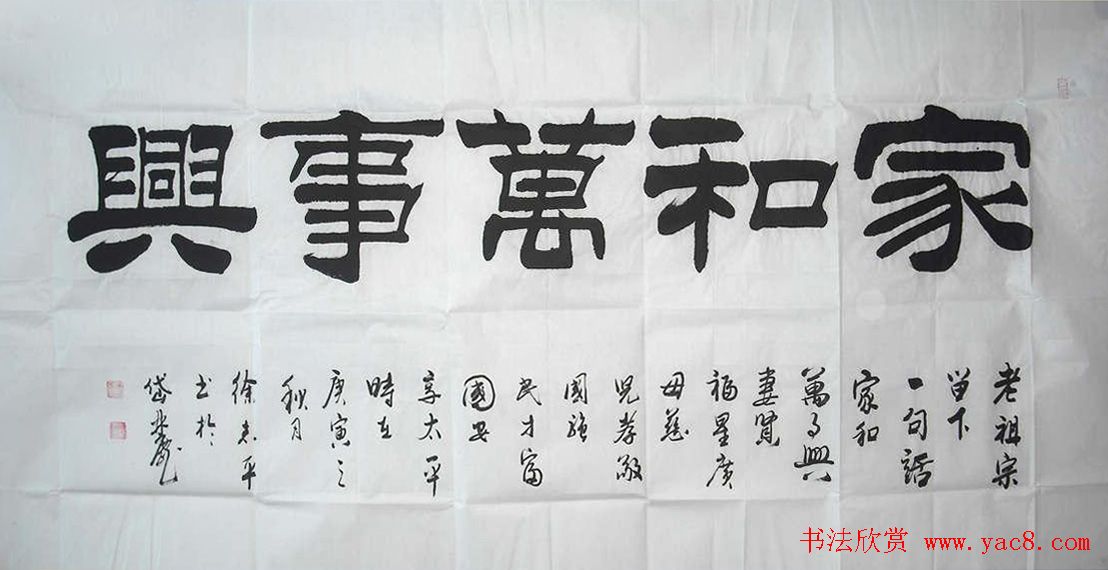 家和萬事興
老祖宗
留下
一句話
家和
萬事興
妻賢
福星廣
母慈
兒孝敬
國強
民才富
國安
享太平
時在
庚寅之
秋月
徐志平
書於
岱北
书法欣赏 www.yac8.com